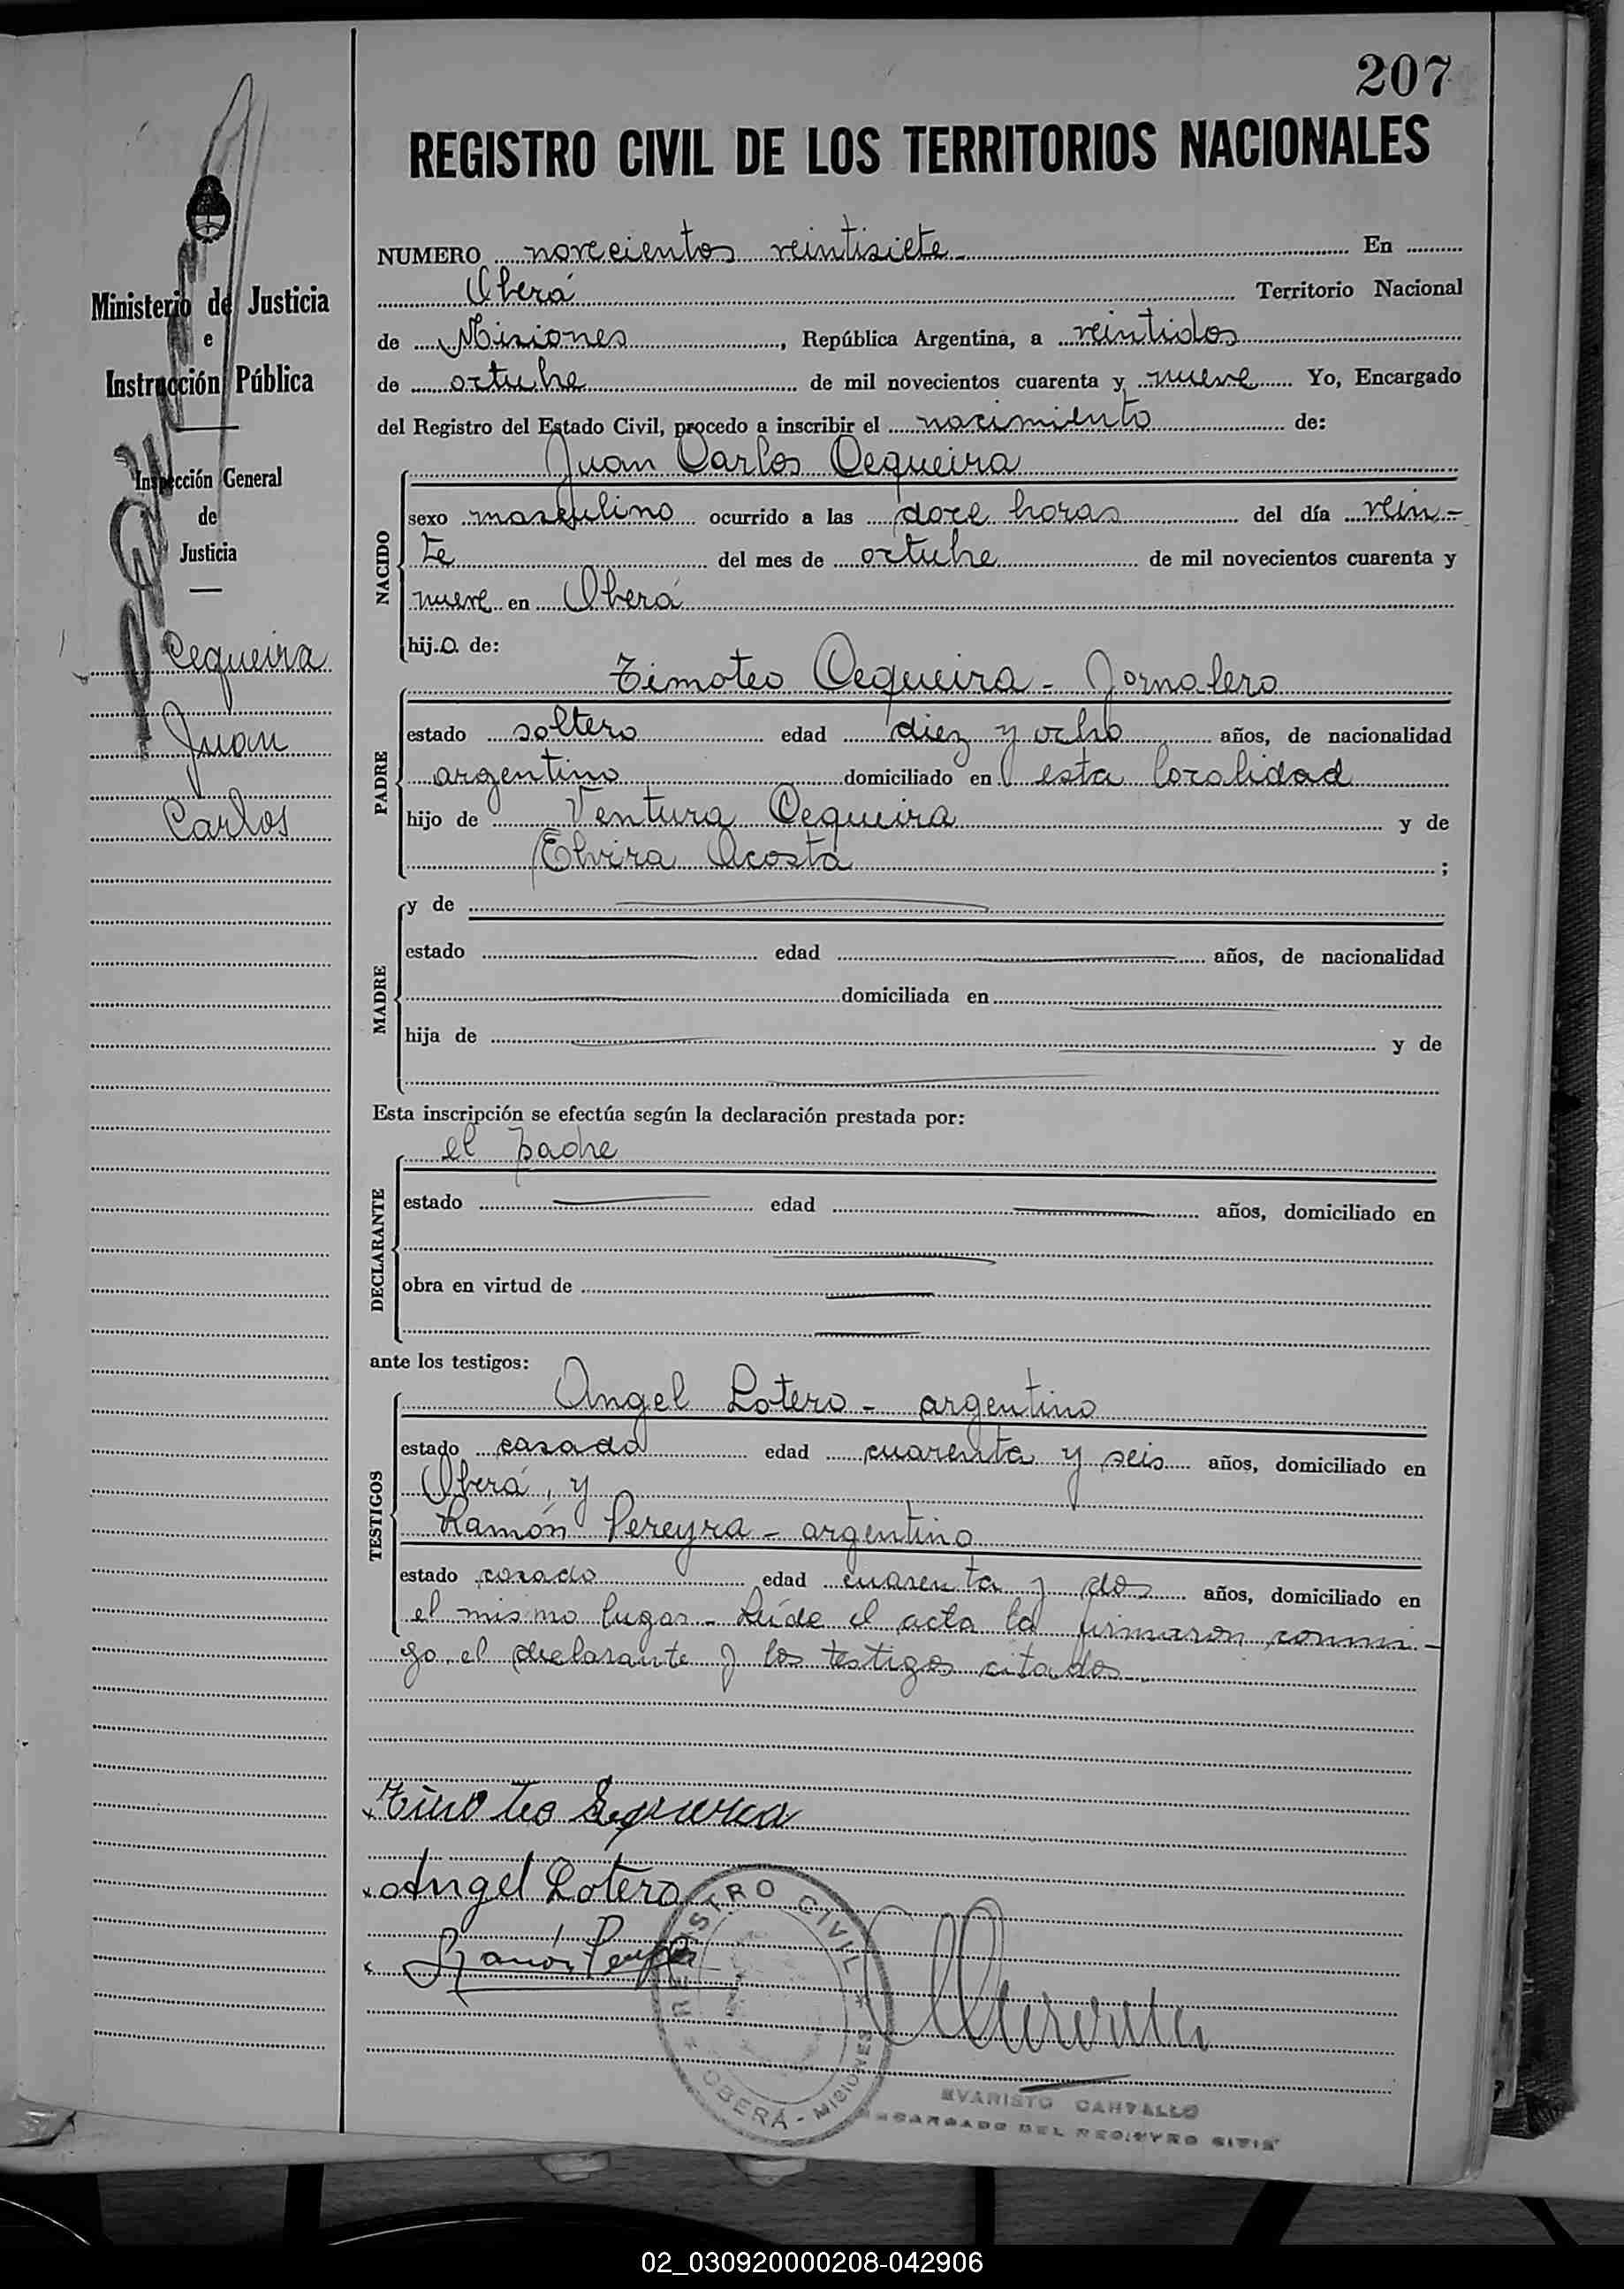 207
REGISTRO CIVIL DE LOS TERRITORIOS NACIONALES
NUMERO novecientos veintisiete En
Oberá Territorio Nacional
de Misiones, República Argentina, a veintidos
de octubre de mil novecientos cuarenta y nueve Yo, Encargado
del Registro del Estado Civil, procedo a inscribir el nacimiento de:
Juan Carlos Cequeira
NACIDO
sexo masculino ocurrido a las doce horas del día vein-
te del mes de octubre de mil novecientos cuarenta y
nueve en Oberá
hijo de:
Timoteo Cequeira - Jornalero
PADRE
estado soltero edad diez y ocho años, de nacionalidad
argentino domiciliado en esta localidad
hijo de Ventura Cequeira y de
Elvira Acosta ;
MADRE
y de
estado edad años, de nacionalidad
domiciliada en
hija de y de
Esta inscripción se efectúa según la declaración prestada por:
el padre
DECLARANTE
estado edad años, domiciliado en
obra en virtud de
ante los testigos:
Angel Lotero - argentino
TESTIGOS
estado casado edad cuarenta y seis años, domiciliado en
Oberá, y
Ramón Pereyra - argentino
estado casado edad cuarenta y dos años, domiciliado en
el mismo lugar - Leída el acta la firmaron conmi-
go, el declarante y los testigos citados
Timoteo Sequeira
Angel Lotero
Ramón Pereyra
REGISTRO CIVIL
OBERÁ - MISIONES
EVARISTO CARVALLO
ENCARGADO DEL REGISTRO CIVIL
Ministerio de Justicia
e
Instrucción Pública
Inspección General
de
Justicia
Cequeira
Juan
Carlos
02_030920000208-042906